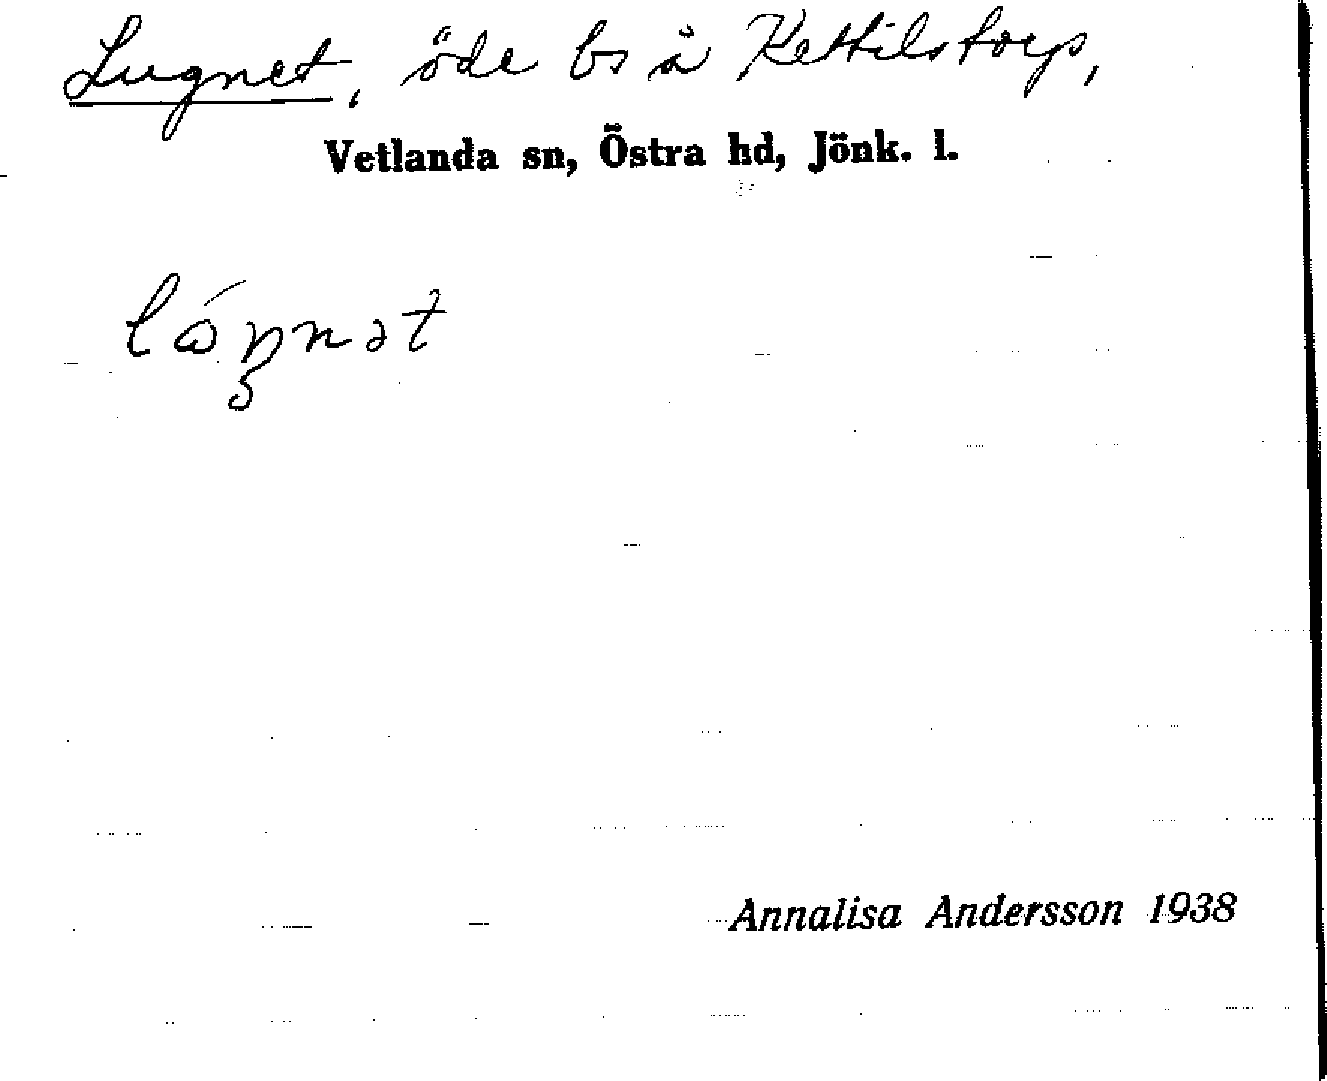 Lugnet, öde bs å Kettilstorp,
Vetlanda sn, Östra hd, Jönk. l.
Annalisa Andersson 1938